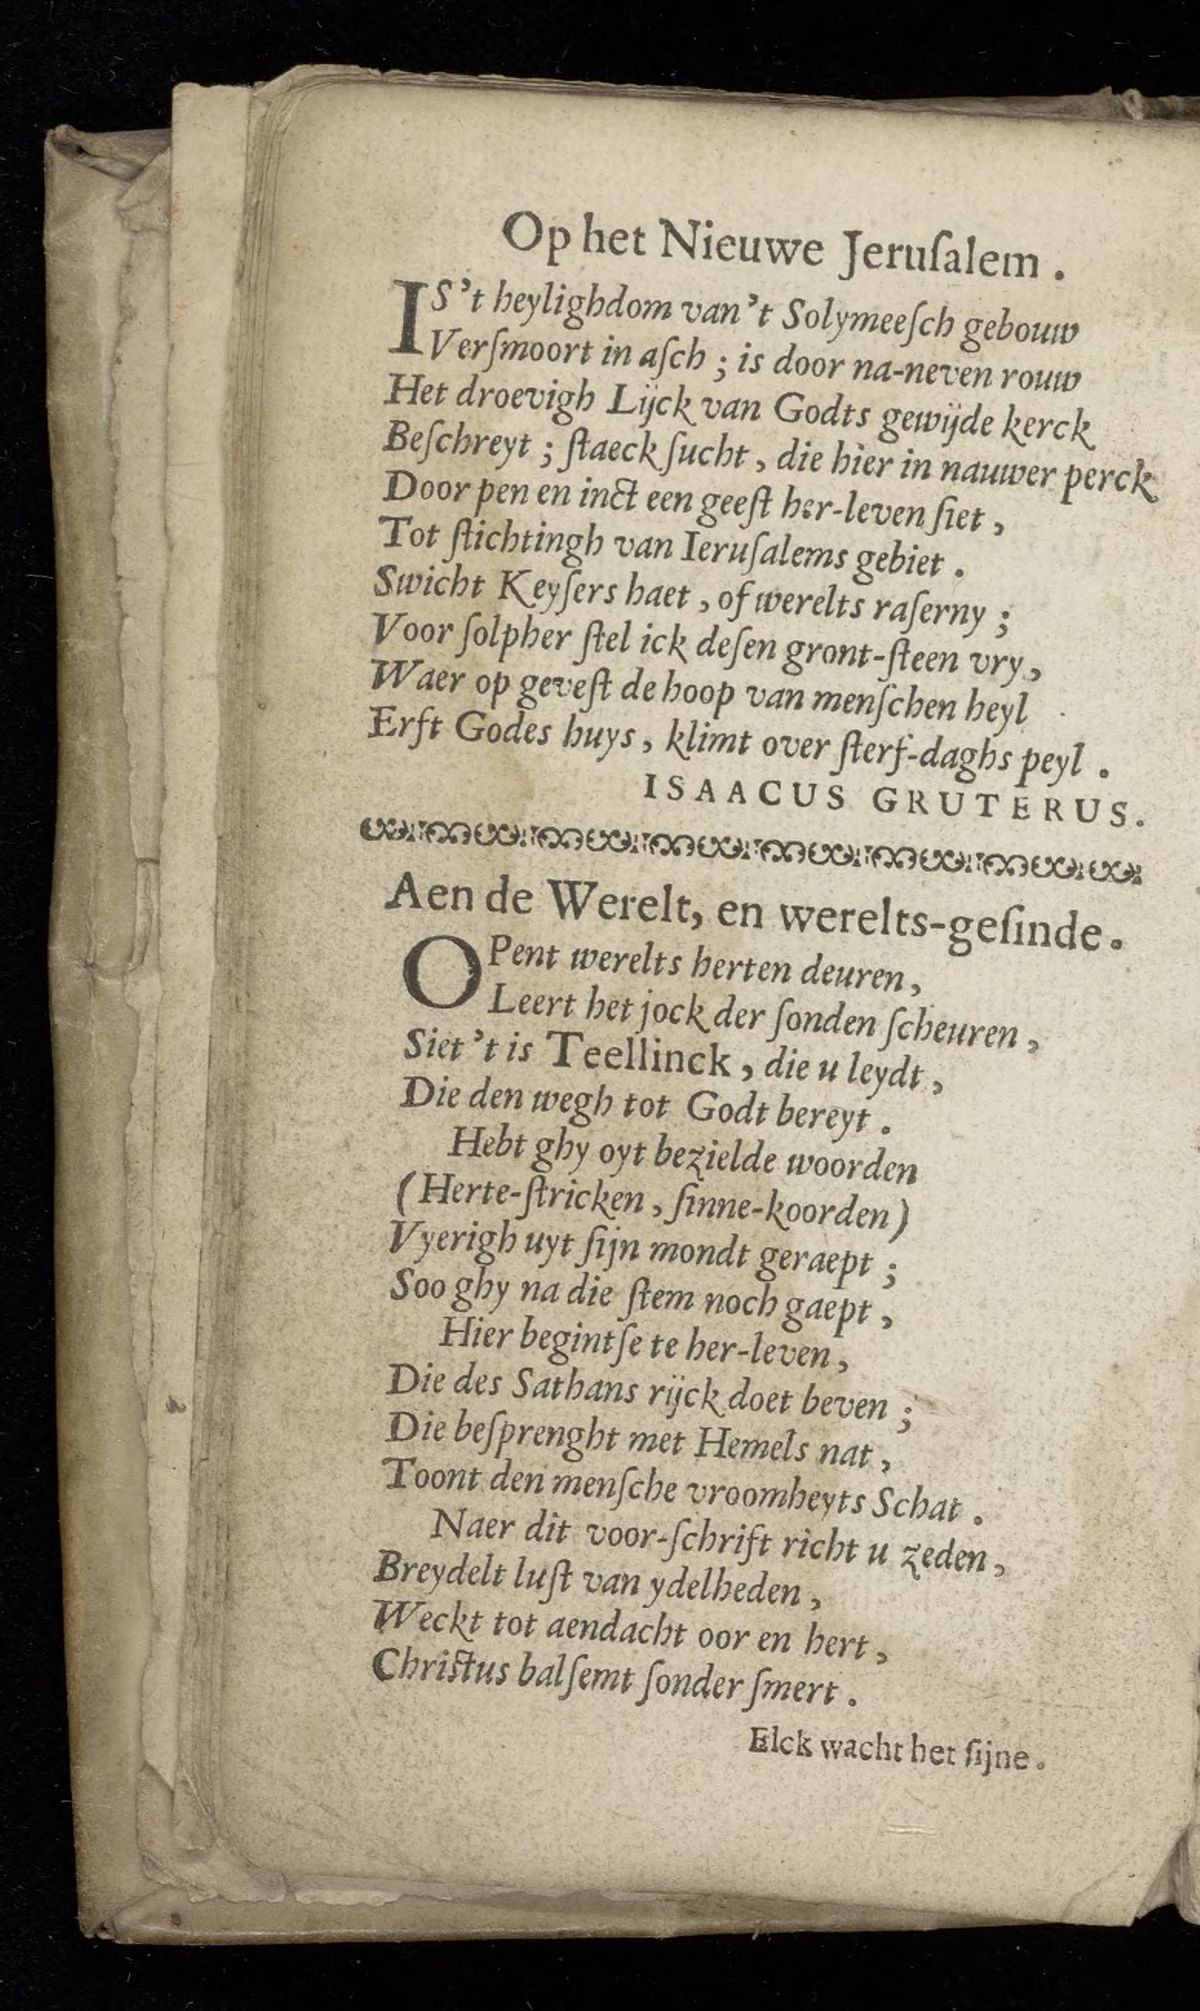 Op het Nieuwe Jeruſalem.
IS't heylighdom van't Solymeeſch gebouw
Verſmoort in aſch; is door na-neven rouw
Het droevigh Lijck van Godts gewijde kerck
Beſchreyt; ſtaeck ſucht, die hier in nauwer perck
Door pen en inct een geeſt her-leven ſiet,
Tot ſtichtingh van Ieruſalems gebiet.
Swicht Keyſers haet, of werelts raſerny;
Voor ſolpher ſtel ick deſen gront-ſteen vry,
Waer op geveſt de hoop van menſchen heyl
Erft Godes huys, klimt over ſterf-daghs peyl.
ISAACUS GRUTERUS.
Aen de Werelt, en werelts-geſinde.
OPent werelts herten deuren,
Leert het jock der ſonden ſcheuren,
Siet 't is Teellinck, die u leydt,
Die den wegh tot Godt bereyt.
Hebt ghy oyt bezielde woorden
(Herte-ſtricken, ſinne-koorden)
Vyerigh uyt ſijn mondt geraept;
Soo ghy na die ſtem noch gaept,
Hier begintſe te her-leven,
Die des Sathans rijck doet beven;
Die beſprenght met Hemels nat,
Toont den menſche vroomheyts Schat.
Naer dit voor-ſchrift richt u zeden,
Breydelt luſt van ydelheden,
Weckt tot aendacht oor en hert,
Chriſtus balſemt ſonder ſmert.
Elck wacht het ſijne.